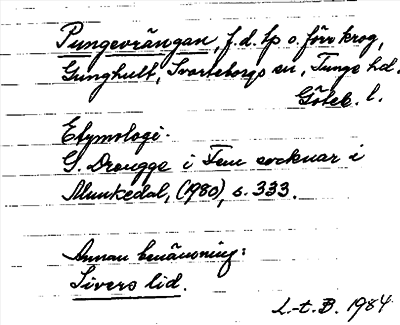 Pungevrängan, f.d. lp o. förr krog,
Gunghult, Svarteborgs sn, Tunge hd.
Göteb. l.
Etymologi.
G. Drougge i Fem socknar i
Munkedal, (1980), s. 333.
Annan benämning:
Sivers lid.
L.-t. B. 1984